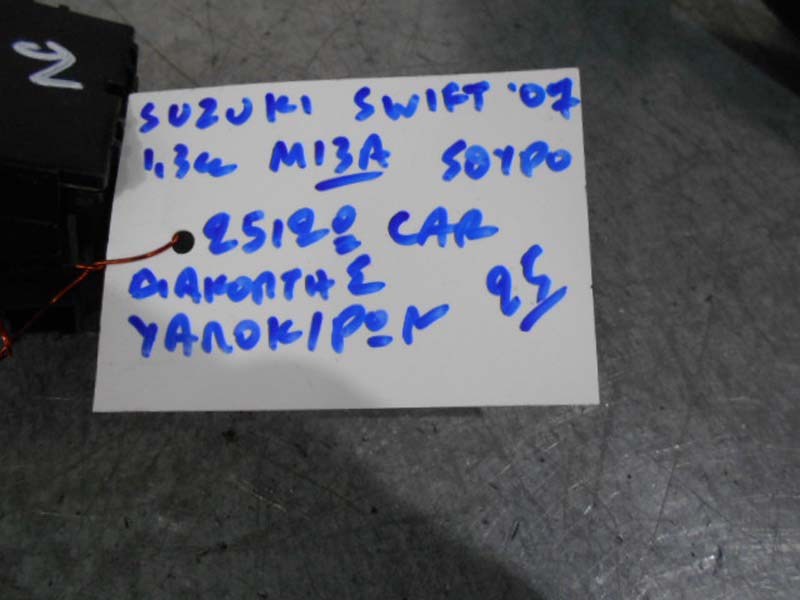 SUZUKI SWIFT '07
1,3cc M13A ΓΟΥΡΟ
25120 CAR
ΔΙΑΚΟΠΤΗΣ 25
ΥΑΛΟΚ/ΡΩΝ